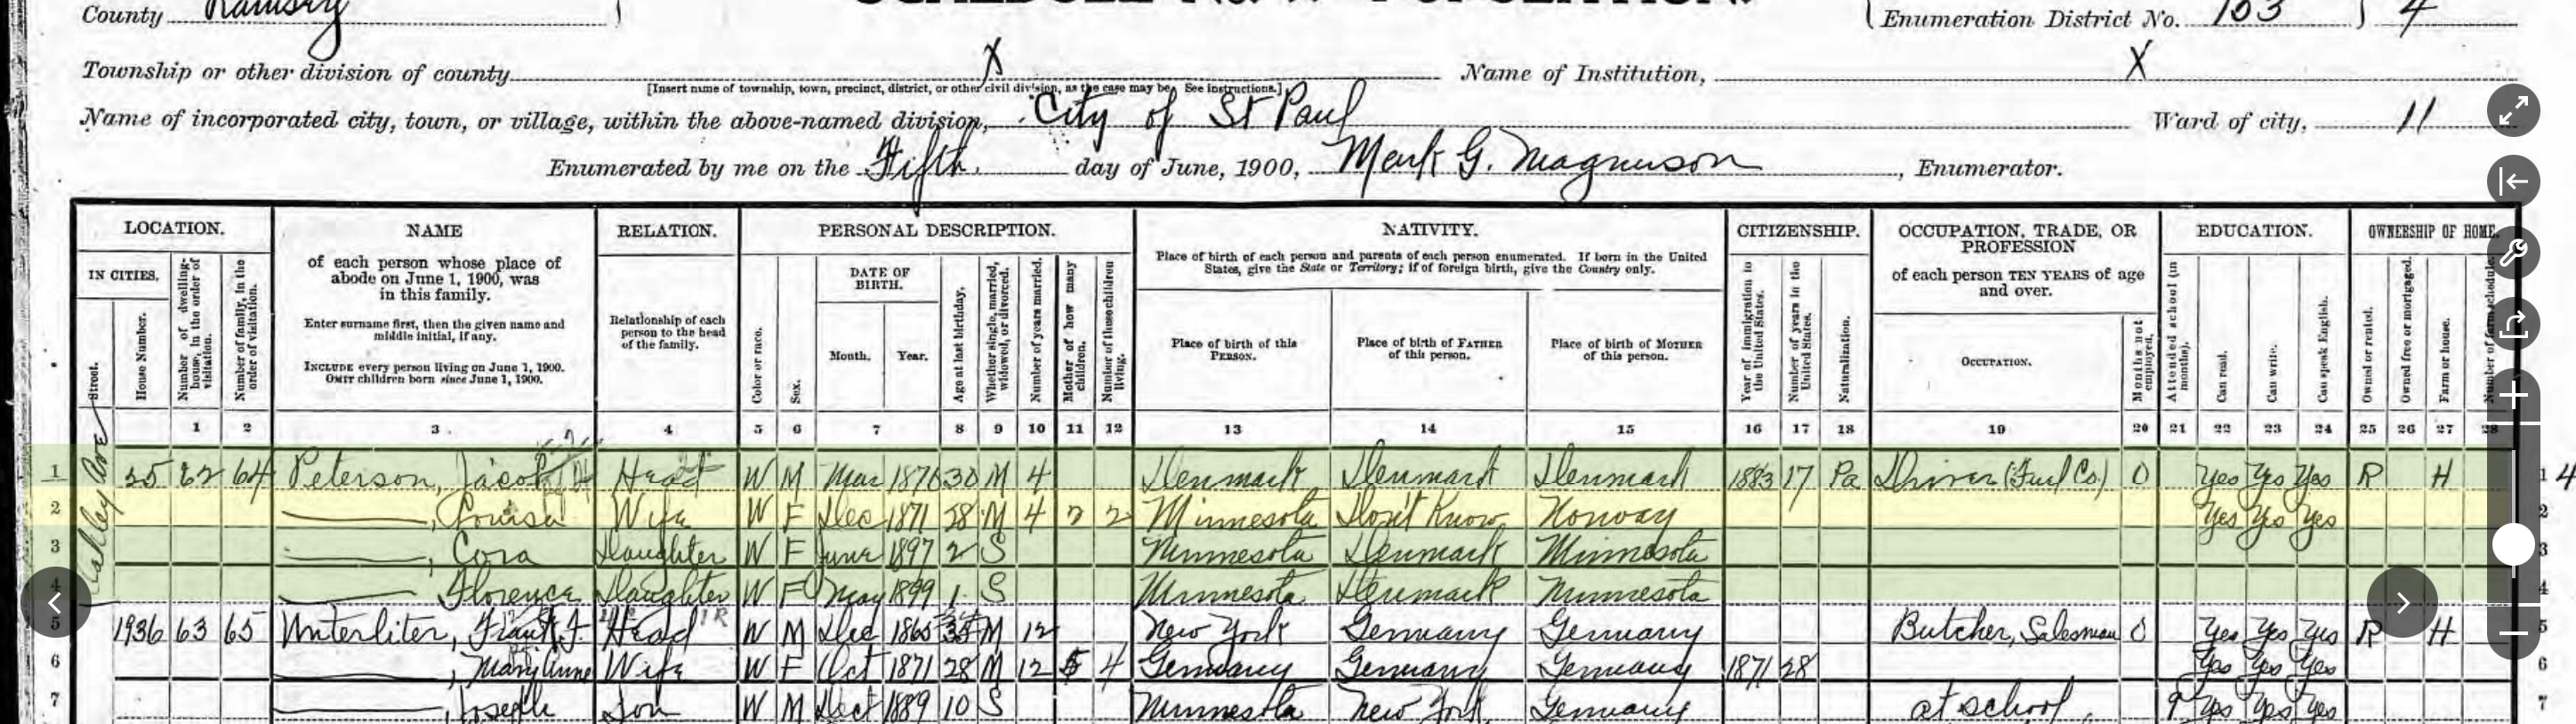 County Ramsey
SCHEDULE No. 1.—POPULATION.
Enumeration District No. 103 4
Township or other division of county X
Name of Institution, X
[Insert name of township, town, precinct, district, or other civil division, as the case may be. See instructions.]
Name of incorporated city, town, or village, within the above-named division, City of St Paul
Ward of city, 11
Enumerated by me on the Fifth day of June, 1900, Mark G. Magnuson, Enumerator.
LOCATION. NAME RELATION. PERSONAL DESCRIPTION. NATIVITY. CITIZENSHIP. OCCUPATION, TRADE, OR PROFESSION EDUCATION. OWNERSHIP OF HOME.
IN CITIES.
Street.
House Number.
Number of dwelling-house, in the order of visitation.
Number of family, in the order of visitation.
of each person whose place of abode on June 1, 1900, was in this family.
Enter surname first, then the given name and middle initial, if any.
INCLUDE every person living on June 1, 1900.
OMIT children born since June 1, 1900.
Relationship of each person to the head of the family.
Color or race.
Sex.
DATE OF BIRTH.
Month. Year.
Age at last birthday.
Whether single, married, widowed, or divorced.
Number of years married.
Mother of how many children.
Number of these children living.
Place of birth of each person and parents of each person enumerated. If born in the United States, give the State or Territory; if of foreign birth, give the Country only.
Place of birth of this PERSON.
Place of birth of FATHER of this person.
Place of birth of MOTHER of this person.
Year of immigration to the United States.
Number of years in the United States.
Naturalization.
of each person TEN YEARS of age and over.
OCCUPATION.
Months not employed.
Attended school (in months).
Can read.
Can write.
Can speak English.
Owned or rented.
Owned free or mortgaged.
Farm or house.
Number of farm schedule.
1 2 3 4 5 6 7 8 9 10 11 12 13 14 15 16 17 18 19 20 21 22 23 24 25 26 27 28
Ave
1 25 62 64 Peterson, Jacob Head W M Mar 1870 30 M 4 Denmark Denmark Denmark 1883 17 Pa Driver (Fuel Co.) 0 Yes Yes Yes R H 1 4
2 ———, Louisa Wife W F Dec 1871 28 M 4 2 2 Minnesota Don't Know Norway Yes Yes Yes 2
3 ———, Cora Daughter W F June 1897 2 S Minnesota Denmark Minnesota 3
4 ———, Florence Daughter W F May 1899 1 S Minnesota Denmark Minnesota 4
5 1936 63 65 Unterliter, Frank J. Head W M Dec 1865 M 12 New York Germany Germany Butcher, Salesman 0 Yes Yes Yes R H 5
6 ———, Mary Anne Wife W F Oct 1871 28 M 12 5 4 Germany Germany Germany 1871 28 Yes Yes Yes 6
7 ———, Joseph Son W M 1889 10 S Minnesota New York Germany at school 9 Yes Yes Yes 7